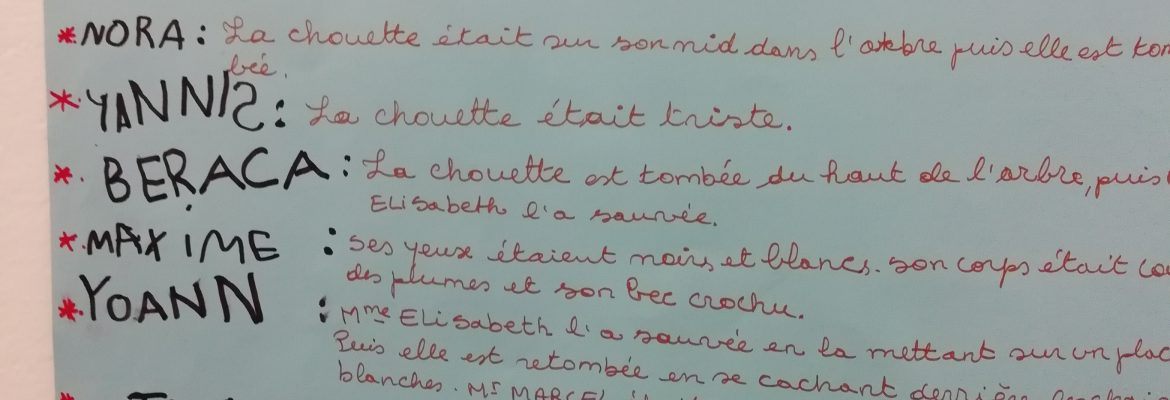 *NORA : La chouette était sur son nid dans l'arbre puis elle est tom
bée.
* YANNIS : La chouette était triste.
* BERACA : La chouette est tombée du haut de l'arbre, puis
ELisabeth l'a sauvée.
* MAXIME : ses yeux étaient noirs et blancs. son corps était
des plumes et son bec crochu.
* YOANN : Mme ELisabeth l'a sauvée en la mettant sur un
Puis elle est retombée en se cachant derrière
blanches. Mr MARCEL